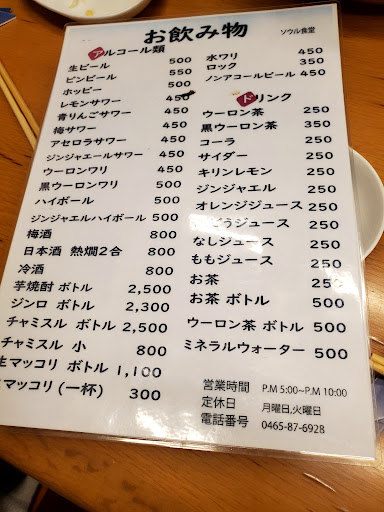 お飲み物
ソウル食堂
アルコール類
生ビール 500
ビンビール 550
ホッピー 500
レモンサワー 450
青りんごサワー 450
梅サワー 450
アセロラサワー 450
ジンジャエールサワー 450
ウーロンワリ 450
黒ウーロンワリ 500
ハイボール 500
ジンジャエルハイボール 500
梅酒 800
日本酒 熱燗2合 800
冷酒 800
芋焼酎 ボトル 2,500
ジンロ ボトル 2,300
チャミスル ボトル 2,500
チャミスル 小 800
生マッコリ ボトル 1,100
マッコリ (一杯) 300
水ワリ 450
ロック 350
ノンアコールビール 450
ドリンク
ウーロン茶 250
黒ウーロン茶 350
コーラ 250
サイダー 250
キリンレモン 250
ジンジャエル 250
オレンジジュース 250
どうジュース 250
なしジュース 250
ももジュース 250
お茶 250
お茶 ボトル 500
ウーロン茶 ボトル 500
ミネラルウォーター 500
営業時間 P.M 5:00~P.M 10:00
定休日 月曜日,火曜日
電話番号 0465-87-6928